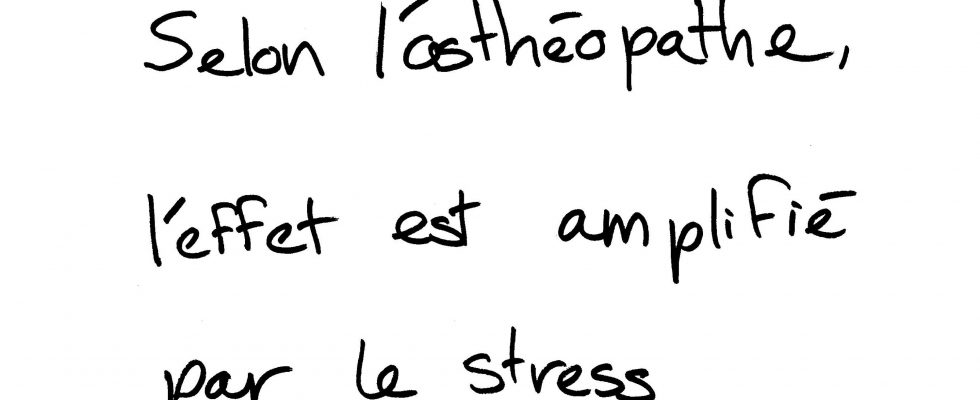 Selon l'osthéopathe,
l'effet est amplifié
par le stress